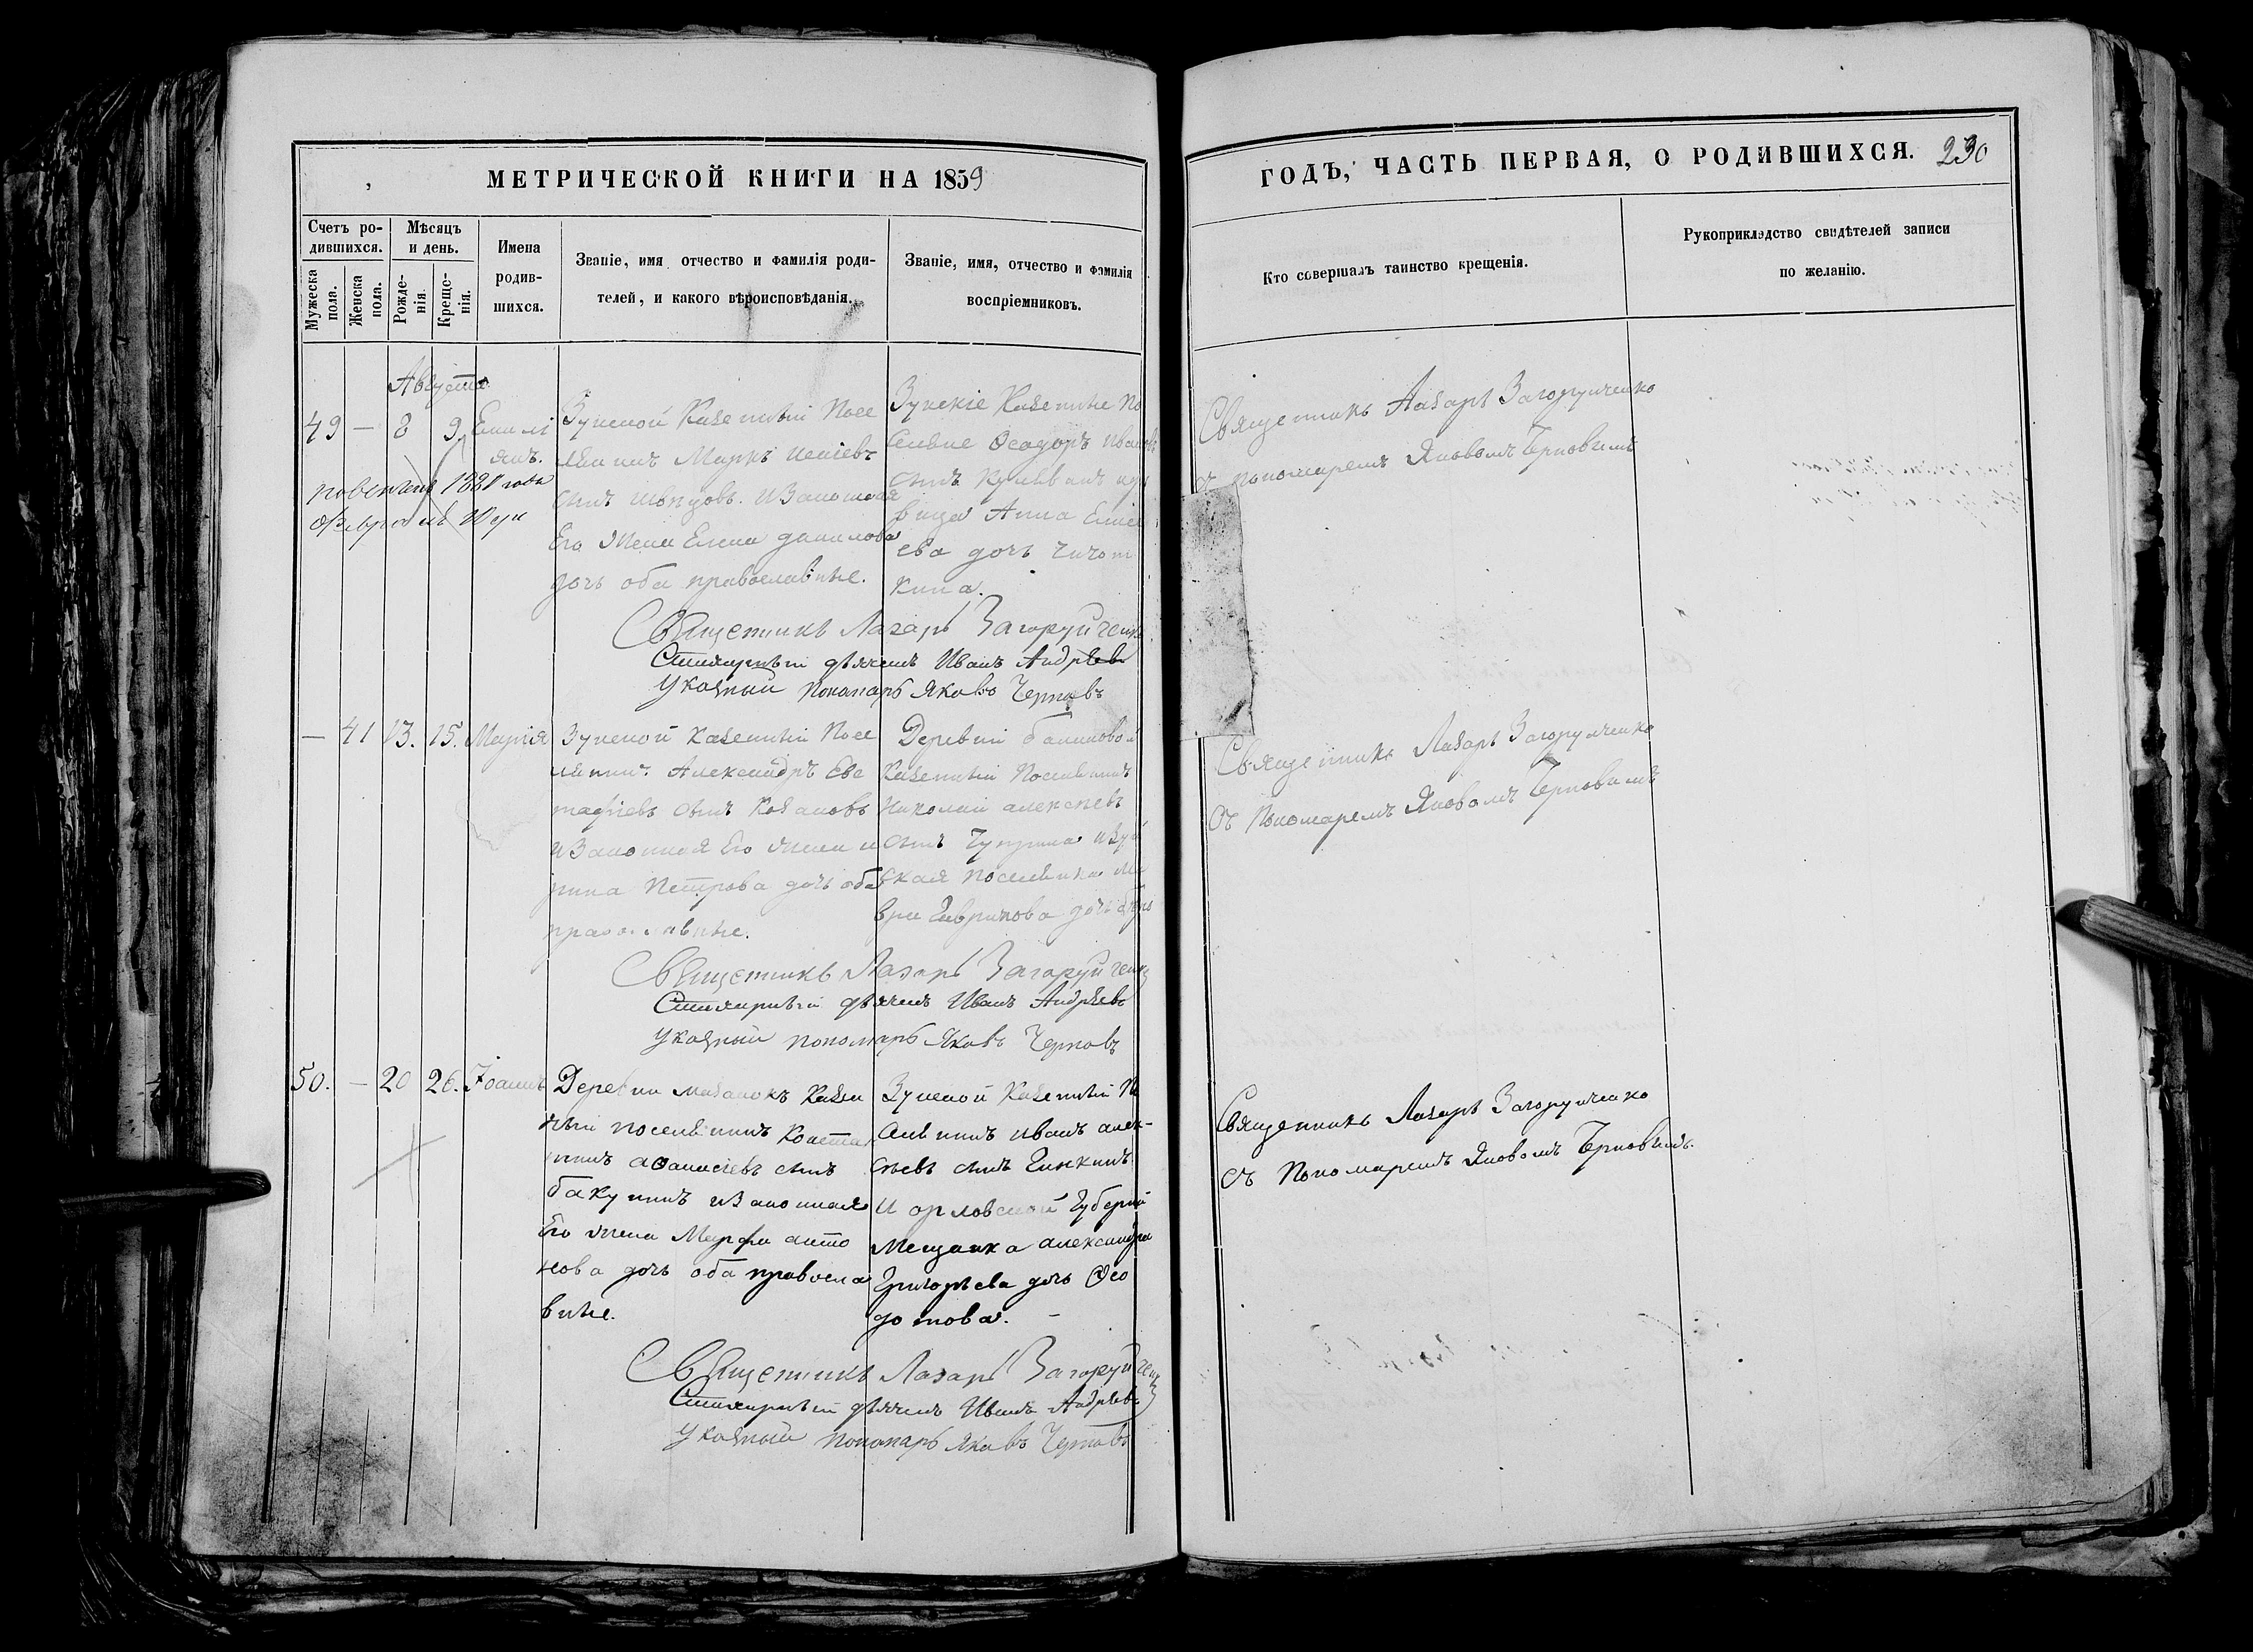 МЕТРИЧЕСКОЙ КНИГИ НА 1859
Счетъ ро-
дившихся.
Мужеска
пола.
Женска
пола.
Мѣсяцъ
и день.
Рожде-
нія.
Креще-
нія.
Имена
родив-
шихся.
Званіе, имя отчество и фамилія роди-
телей, и какого вѣроисповѣданія.
Званіе, имя, отчество и фамилія
воспріемниковъ.
Августа
49 — 8 9
Емилі
янъ.
повенчанъ 1881 года
февраля
Казенный Посе
лянинъ Маркъ
сынъ Швѣцовъ. и Законная
Его Жена Елена данилова
дочь оба православные.
Казенные По
селяне Ѳеодоръ Иванов
сынъ
вица Анна
ева дочь
кина.
Священникъ Лазарь Загоруйченко
Стихарный дьячекъ Иванъ Андрѣевъ
Указный пономарь Яковъ Черновъ
— 41 13. 15. Марія
Казенный Посе
лянинъ Александръ Евс
тафіевъ сынъ Козановъ
и Законная Его Жена и
рина Петрова дочь оба
православные.
Деревни
Казенный Поселянинъ
Николай алексѣевъ
сынъ Чуприна
ская поселянка Ма
вра Гаврилова дочь
Священникъ Лазарь Загоруйченко
Стихарный дьячекъ Иванъ Андрѣевъ
Указный пономарь Яковъ Черновъ
50. — 20 26. Іоаннъ
Деревни мазанокъ Казен
ный поселянинъ Констан
тинъ аѳанасіевъ сынъ
бакунинъ и Законная
Его Жена Марфа анто
нова дочь оба правосла
вные.
Казенный По
селянинъ иванъ алек-
сѣевъ сынъ
И орловской Губерніи
Мещанка александра
Григорьева дочь Ѳео
дотова. —
Священникъ Лазарь Загоруйченко
Стихарный дьячекъ Иванъ Андрѣевъ
Указный пономарь Яковъ Черновъ
ГОДЪ, ЧАСТЬ ПЕРВАЯ, О РОДИВШИХСЯ. 230
Кто совершалъ таинство крещенія.
Рукоприкладство свидѣтелей записи
по желанію.
Священникъ Лазарь Загоруйченко
съ пономаремъ Яковомъ Черновымъ
Священникъ Лазарь Загоруйченко
съ Пономаремъ Яковомъ Черновымъ
Священникъ Лазарь Загоруйченко
съ Пономаремъ Яковомъ Черновымъ.